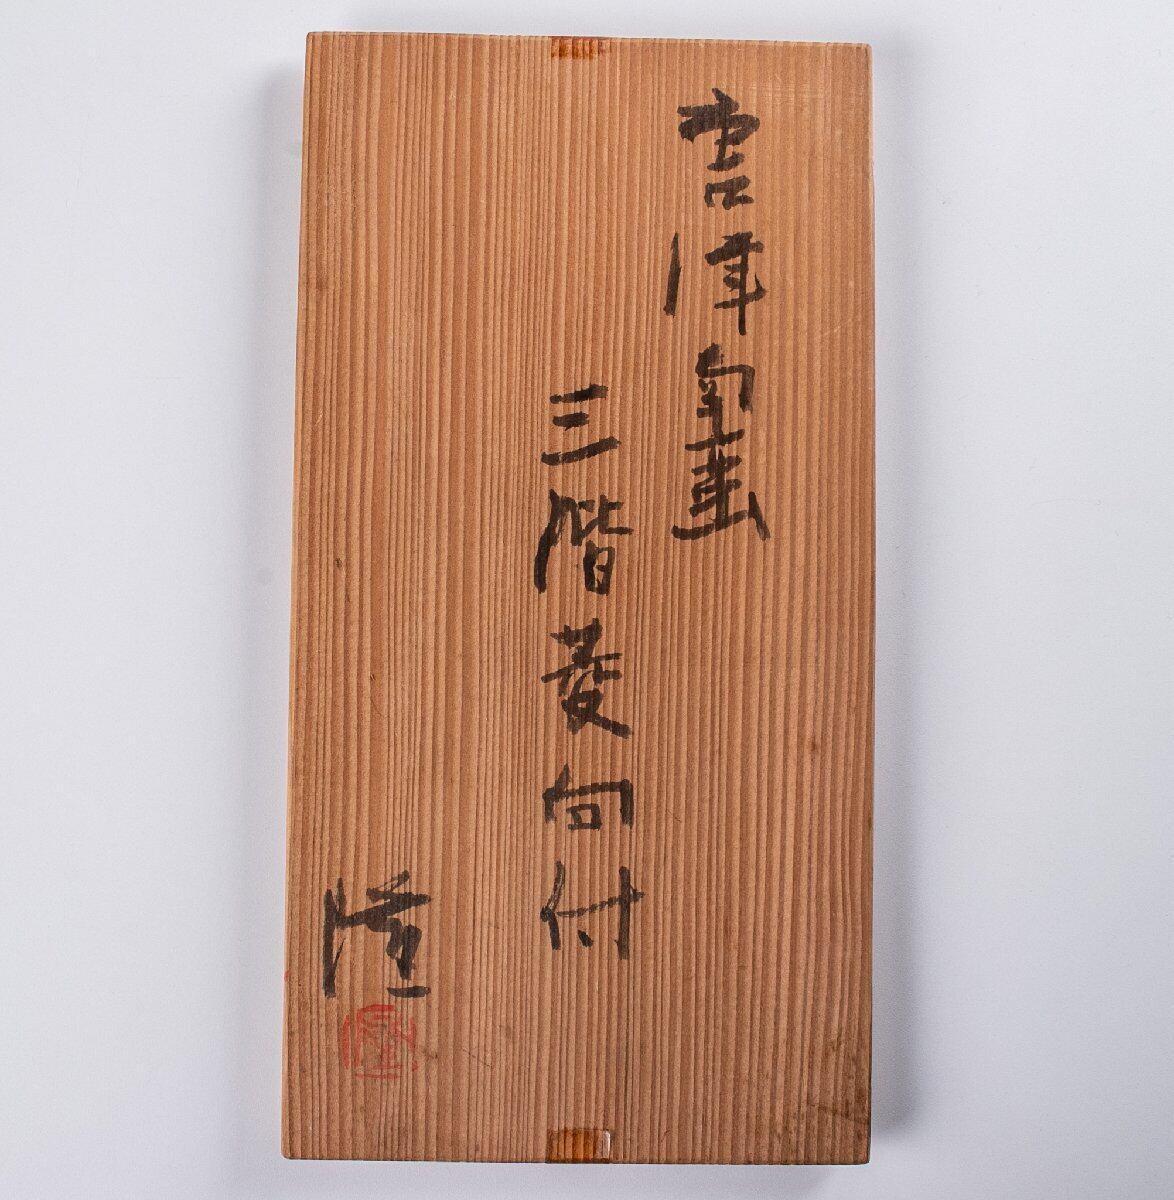 唐津
三階菱向付
隆